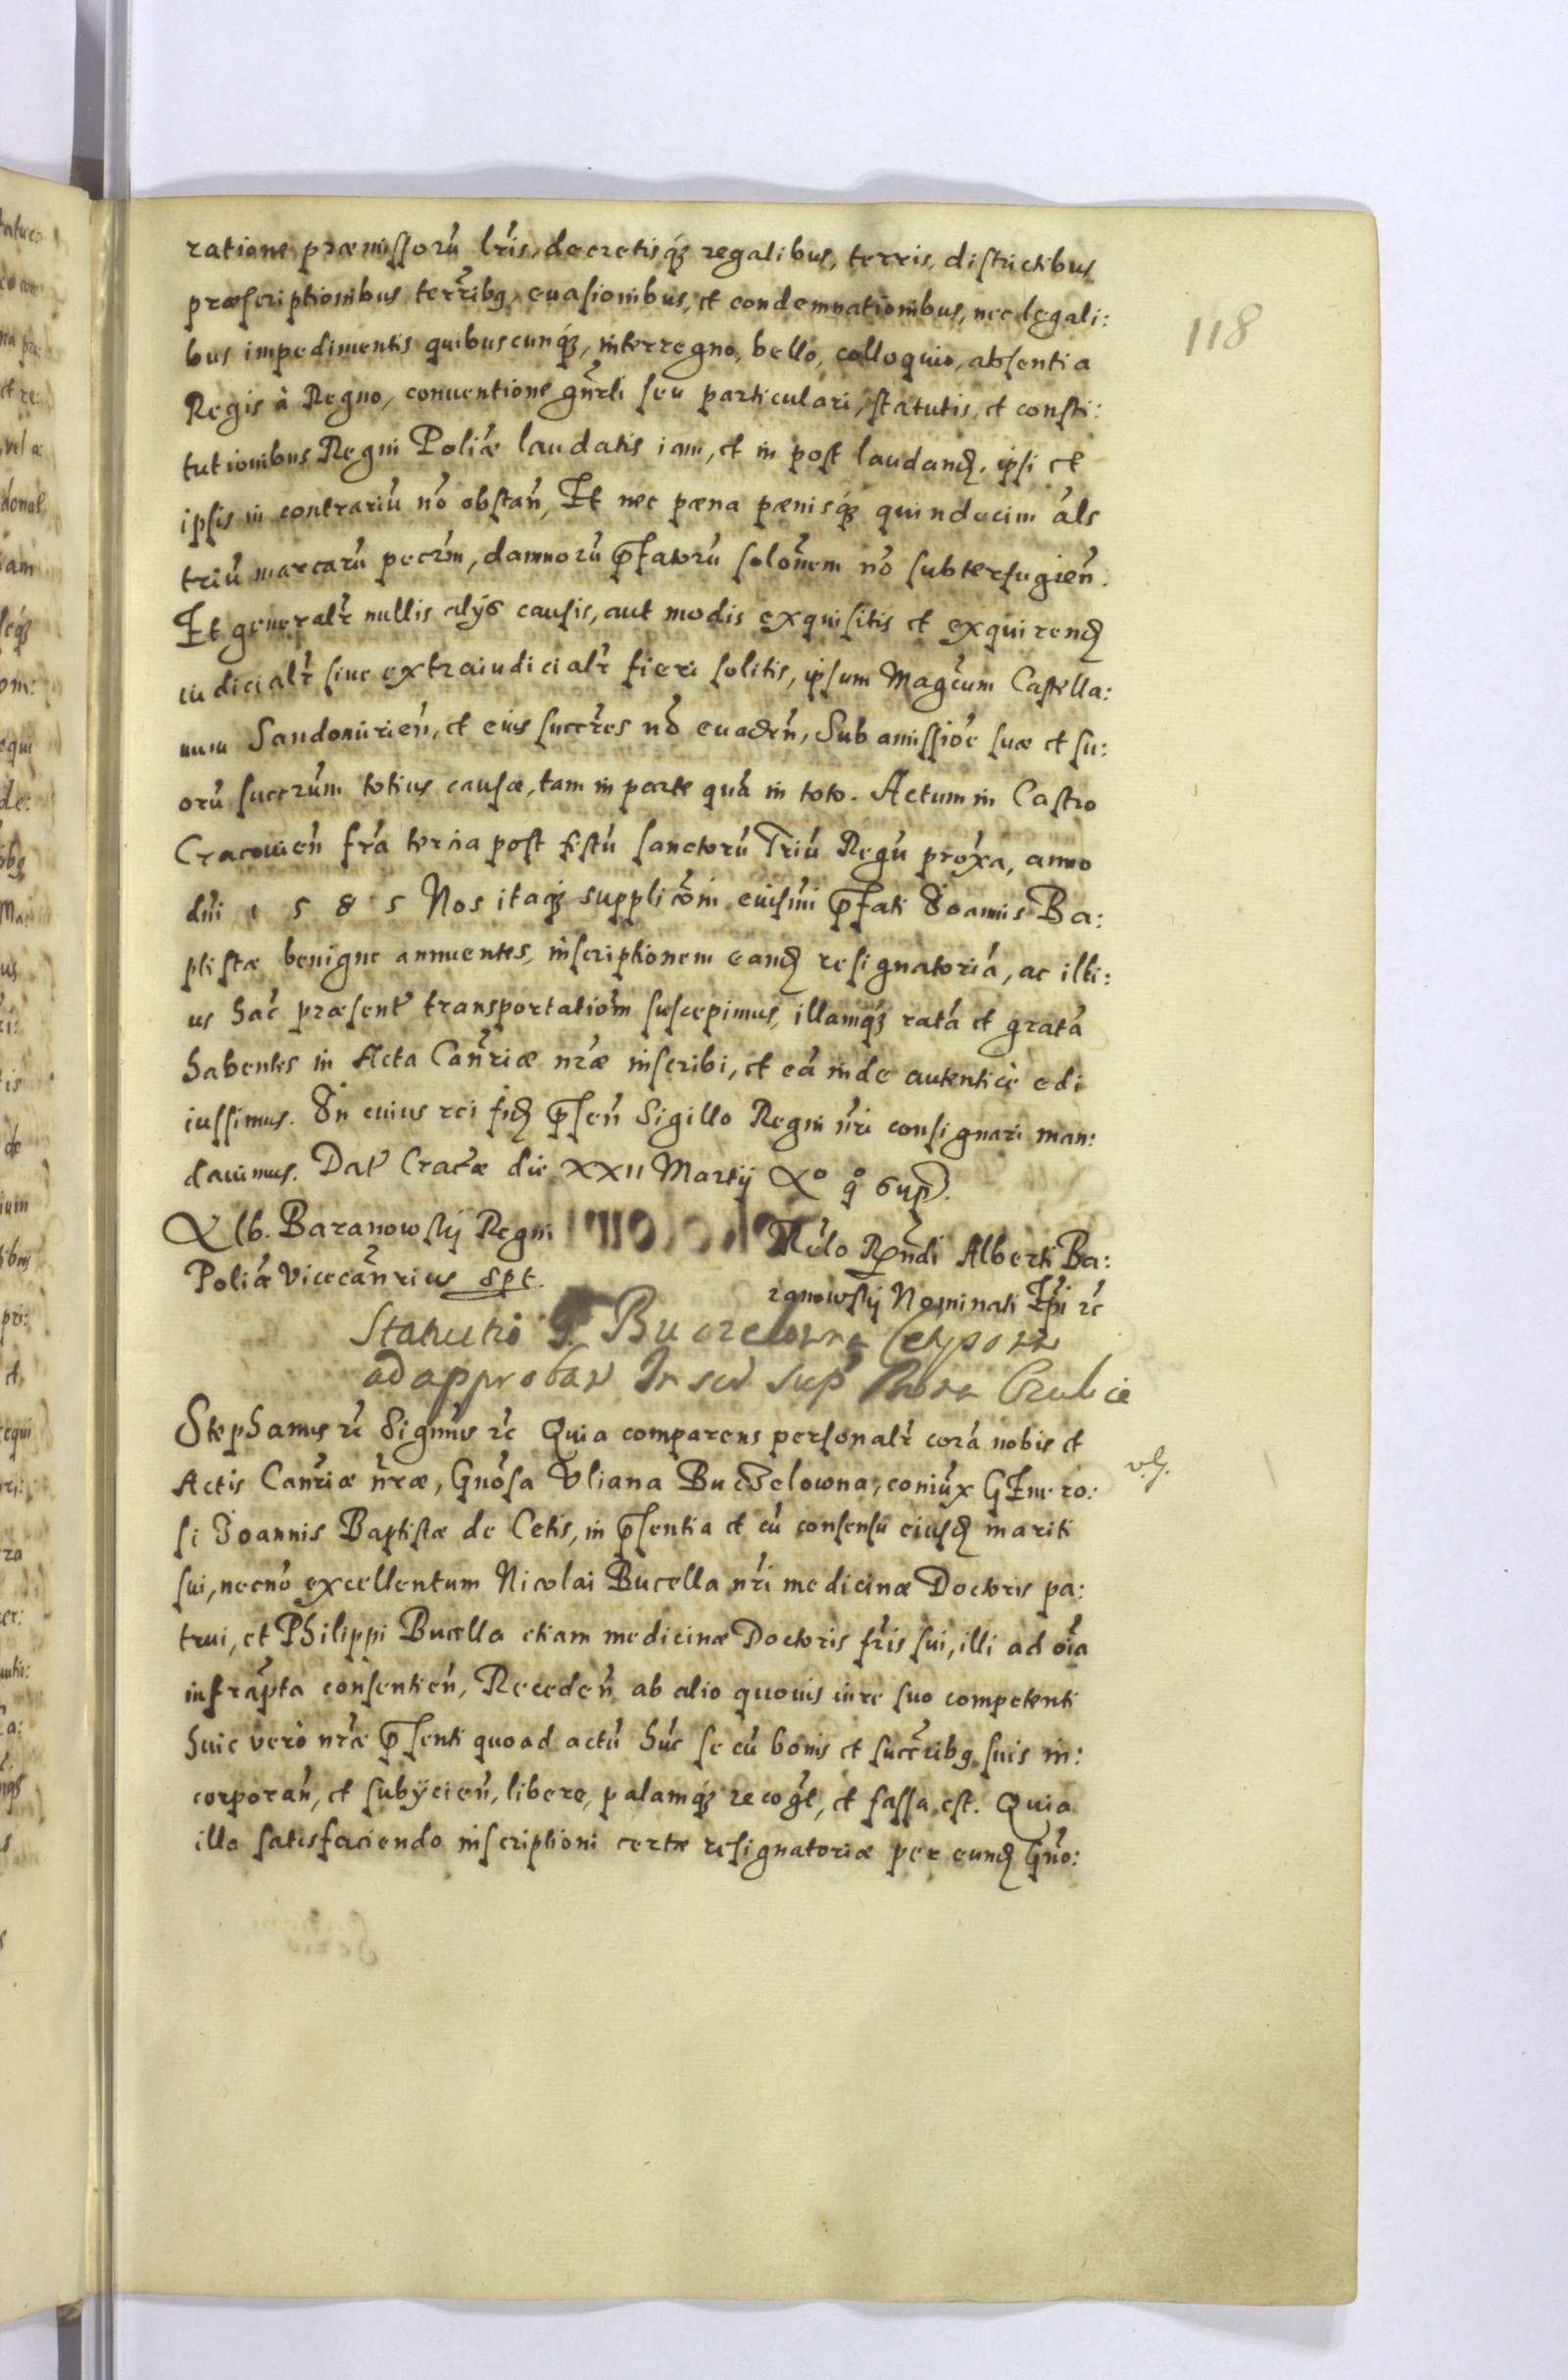 118
ratione præmissorũ lr̃is, decretisq́ȝ regalibus, terris, districtibus
præscriptionibus terr̃ibꝫ, euasionibus, et condemnationibus, nec legali:
bus impedimentis quibuscunq́ȝ, interregno, bello, colloquio, absentia
Regis à Regno, conuentione gñrli seu particulari, statutis, et consti:
tutionibus Regni Poliæ laudatis iam, et in post laudanđ. ipsi et
ipsis in contrariũ nõ obstañ, Et nec pæna pænisq́ȝ quindecim ál̃s
triũ marcarũ pecr̃m, damnorũ p̱fatorũ solõnem nõ subterfugieñ.
Et generalr̃ nullis alys causis, aut modis exquisitis et exquirenđ
iudicialr̃ siue extraiudicialr̃ fieri solitis, ipsum Magc̃um Castella:
num Sandomirieñ, et eius succr̃es nõ euadeñ, Sub amissiõe suæ et su:
orũ succr̃um totius causæ, tam in parte quã in toto. Actum in Castro
Cracouieñ fr̃a tertia post festũ sanctorũ Triũ Regũ prox̃a, anno
dñi 1585 Nos itaq́ȝ supplicõni euism̃i p̱fati Ioannis Ba:
ptistæ benigne annuentes, inscriptionem eanđ resignatoriã, ac illi:
us hac̃ præsent̃ transportatiõm suscepimus, illamq́ȝ ratã et gratã
habentes in Acta Cañriæ nr̃æ inscribi, et eã inde autentice edi
iussimus. In cuius rei fiđ p̱señ Sigillo Regni nr̃i consignari man:
dauimus. Dat̃ Crac̃æ die XXII Martij Aº qº sup.
Alb. Baranowsky Regni
Poliæ Vicecañrius spt.
Relo Rñdi Alberti Ba:
ranowsky Nominati Ep̃i rc̃
Statutio
ad approbañ
Stephanus rc̃ Signm̃s rc̃ Quia comparens personalr̃ corã nobis et
Actis Cañriæ nr̃æ, Gnõsa Vliana Buczelowna, coniũx Genero:
si Ioannis Baptistæ de Cetis, in p̱sentia et cũ consensu eiusđ mariti
sui, necnõ excellentum Nicolai Bucella nr̃i medicinæ Doctoris pa:
trui, et Philippi Bucella etiam medicinæ Doctoris fr̃is sui, illi ad oĩa
infrãpta consentieñ, Recedeñ ab alio quouis iure suo competenti
huic verò nr̃æ p̱senti quoad actũ hũc se cũ bonis et succr̃ibꝫ suis in:
corporañ, et subÿcieñ, libere, palamq́ȝ recogt̃, et fassa est. Quia
illa satisfaciendo inscriptioni certæ resignatoriæ per eunđ Gnõ: